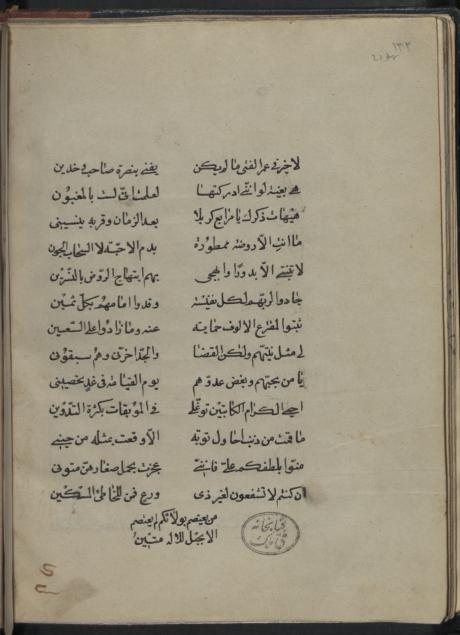 ١٣٢
لا خير في عمر الفتى ما لم يكن يفنى بنصرة صاحب وخدين
هي بغية لو انني ادركتها لعلمت اني لست بالمغبون
هيهات ذكرك يا مرابع كربلا بعد الزمان وقربه ينسيني
ما انت الا روضة ممطورة بدم الاحبة لا السحاب الجون
لا تنبتي الا بدورا والمجى بهم ابتهاج الروض بالنسرين
جادوا لربهم لكل نفيسة وفدوا امامهم بكل ثمين
ثبتوا لمقترع الالوف حمايته عنه وما زادوا على السبعين
لي مثل نيتهم ولكن القضا والجد اخرني وهم سبقوني
يا من بحبهم وبغض عدوهم يوم القيامة في غد تخصيني
اعيى الكرام الكاتبين توغلي في الموبقات بكثرة التدوين
ما قمت من ذنب احاول توبة الا وقعت بمثله من حيني
منوا بلطفكم علي فانني عجزت بحمل صغارهن متوني
ان كنتم لا تشفعون لغير ذي ورع فمن للخاطئ المسكين
من يعتصم بولائكم لم يعتصم
الا بحبل للاله متين
كتابخانه